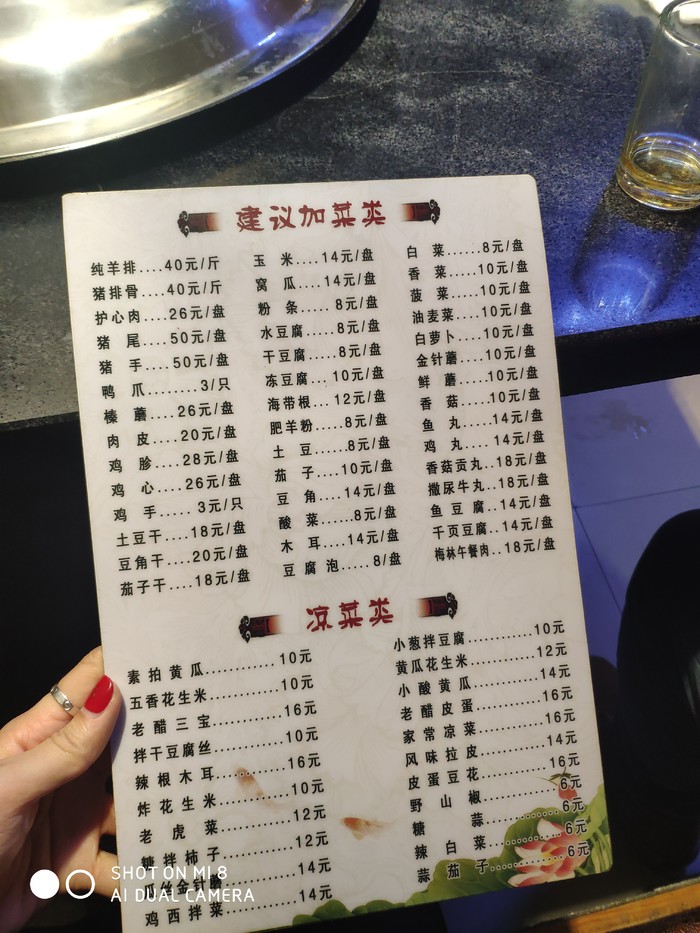 建议加菜类
纯羊排....40元/斤
猪排骨....40元/斤
护心肉....26元/盘
猪 尾....50元/盘
猪 手....50元/盘
鸭 爪........3/只
榛 蘑....26元/盘
肉 皮....20元/盘
鸡 胗....28元/盘
鸡 心....26元/盘
鸡 手..... 3元/只
土豆干....18元/盘
豆角干....20元/盘
茄子干....18元/盘
玉 米....14元/盘
窝 瓜....14元/盘
粉 条..... 8元/盘
水豆腐.....8元/盘
干豆腐.....8元/盘
冻豆腐... 10元/盘
海带根... 12元/盘
肥羊粉.....8元/盘
土 豆......8元/盘
茄 子....10元/盘
豆 角....14元/盘
酸 菜......8元/盘
木 耳....14元/盘
豆 腐 泡.....8/盘
白 菜......8元/盘
香 菜.....10元/盘
菠 菜.....10元/盘
油麦菜....10元/盘
白萝卜....10元/盘
金针蘑....10元/盘
鲜 蘑.....10元/盘
香 菇.....10元/盘
鱼 丸.....14元/盘
鸡 丸.... 14元/盘
香菇贡丸..18元/盘
撒尿牛丸..18元/盘
鱼 豆 腐..14元/盘
千页豆腐..14元/盘
梅林午餐肉..18元/盘
凉菜类
素 拍 黄 瓜............10元
五香花生米............10元
老 醋 三 宝............16元
拌干豆腐丝............10元
辣 根 木 耳............16元
炸 花 生 米............10元
老 虎 菜............12元
糖 拌 柿 子............12元
瓜丝金针蘑............14元
鸡 西 拌 菜............14元
小葱拌豆腐............10元
黄瓜花生米............12元
小 酸 黄 瓜............14元
老 醋 皮 蛋............16元
家 常 凉 菜............16元
风 味 拉 皮............14元
皮 蛋 豆 花............16元
野 山 椒............6元
糖 蒜............6元
辣 白 菜............6元
蒜 茄 子............6元
SHOT ON MI 8
AI DUAL CAMERA